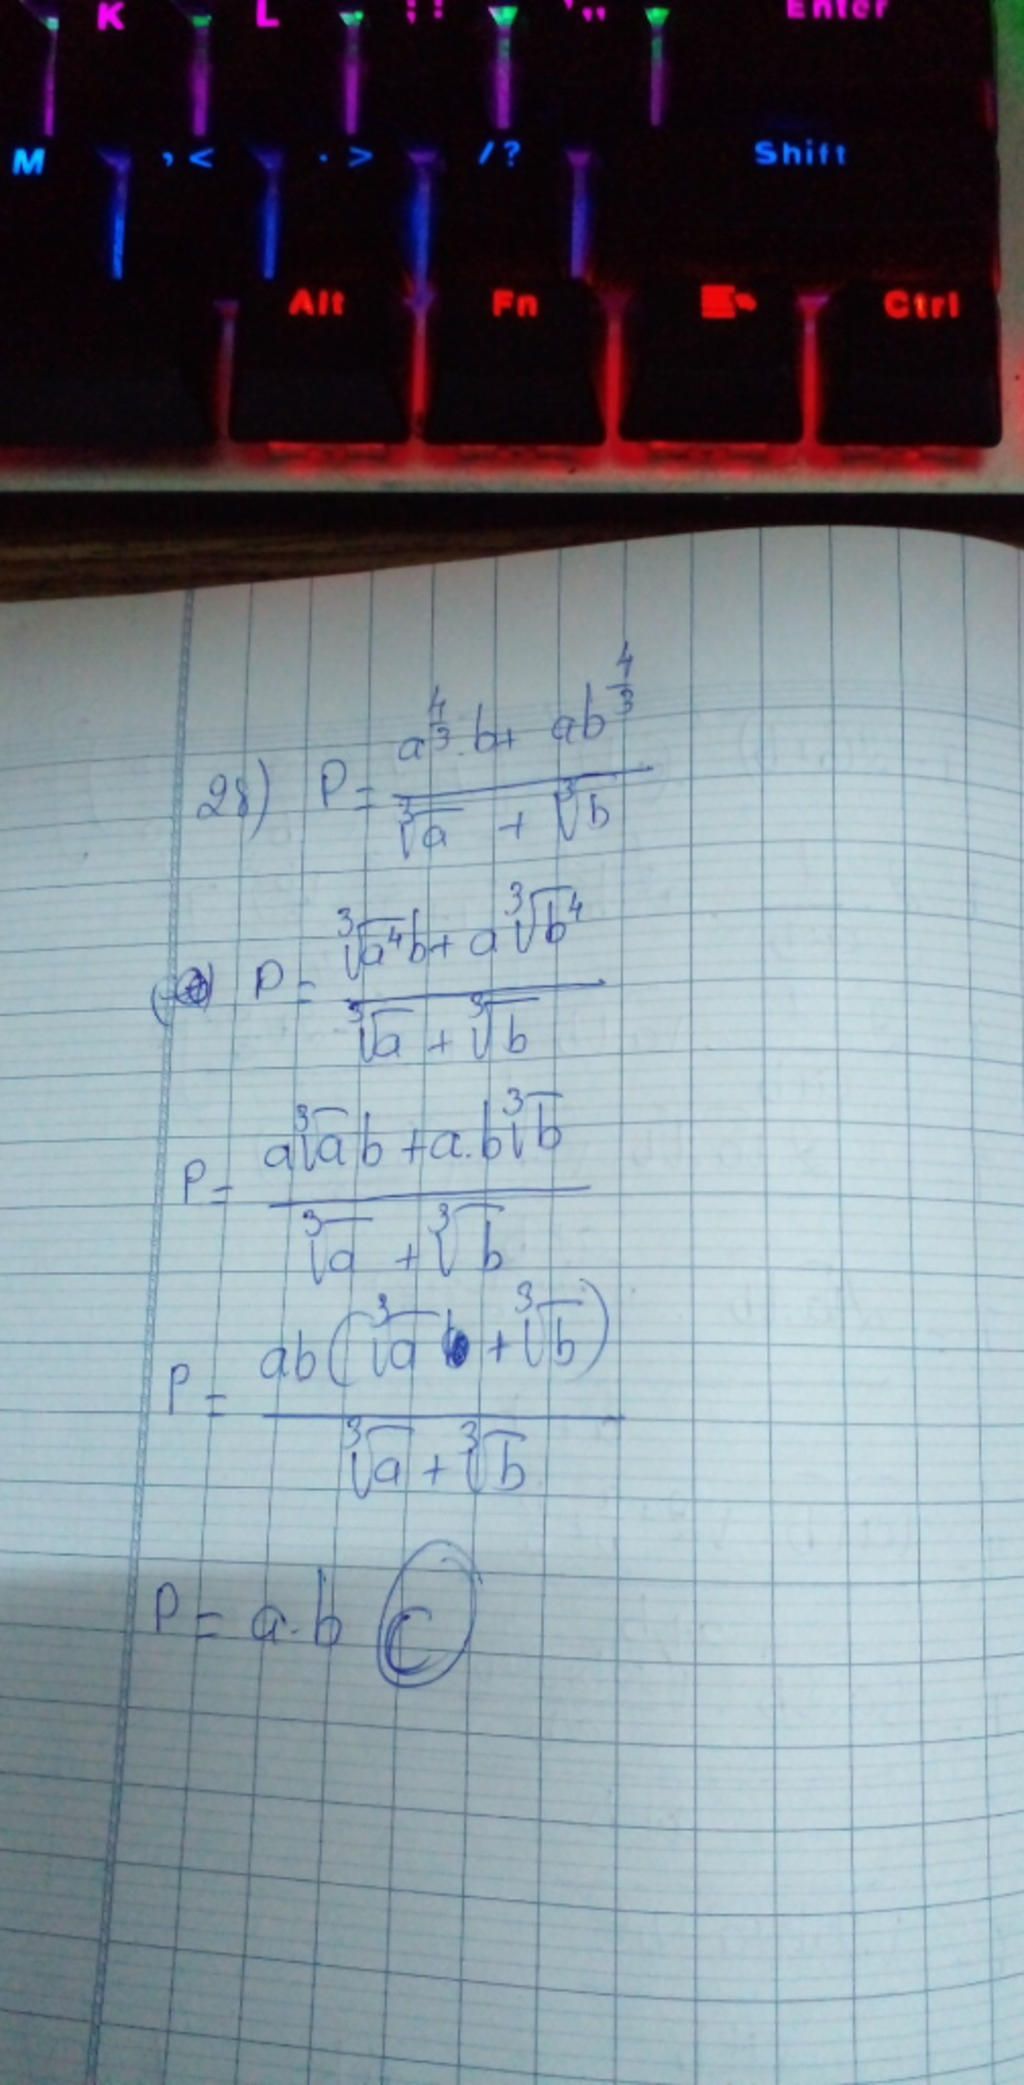 K L ; : ' " Enter
M , < . > / ? Shift
Alt Fn Ctrl
28) P = \frac{a^{\frac{4}{3}}.b + ab^{\frac{4}{3}}}{\sqrt[3]{a} + \sqrt[3]{b}}
P = \frac{\sqrt[3]{a^4}b + a\sqrt[3]{b^4}}{\sqrt[3]{a} + \sqrt[3]{b}}
P = \frac{a\sqrt[3]{a}b + a.b\sqrt[3]{b}}{\sqrt[3]{a} + \sqrt[3]{b}}
P = \frac{ab(\sqrt[3]{a} + \sqrt[3]{b})}{\sqrt[3]{a} + \sqrt[3]{b}}
P = a.b C